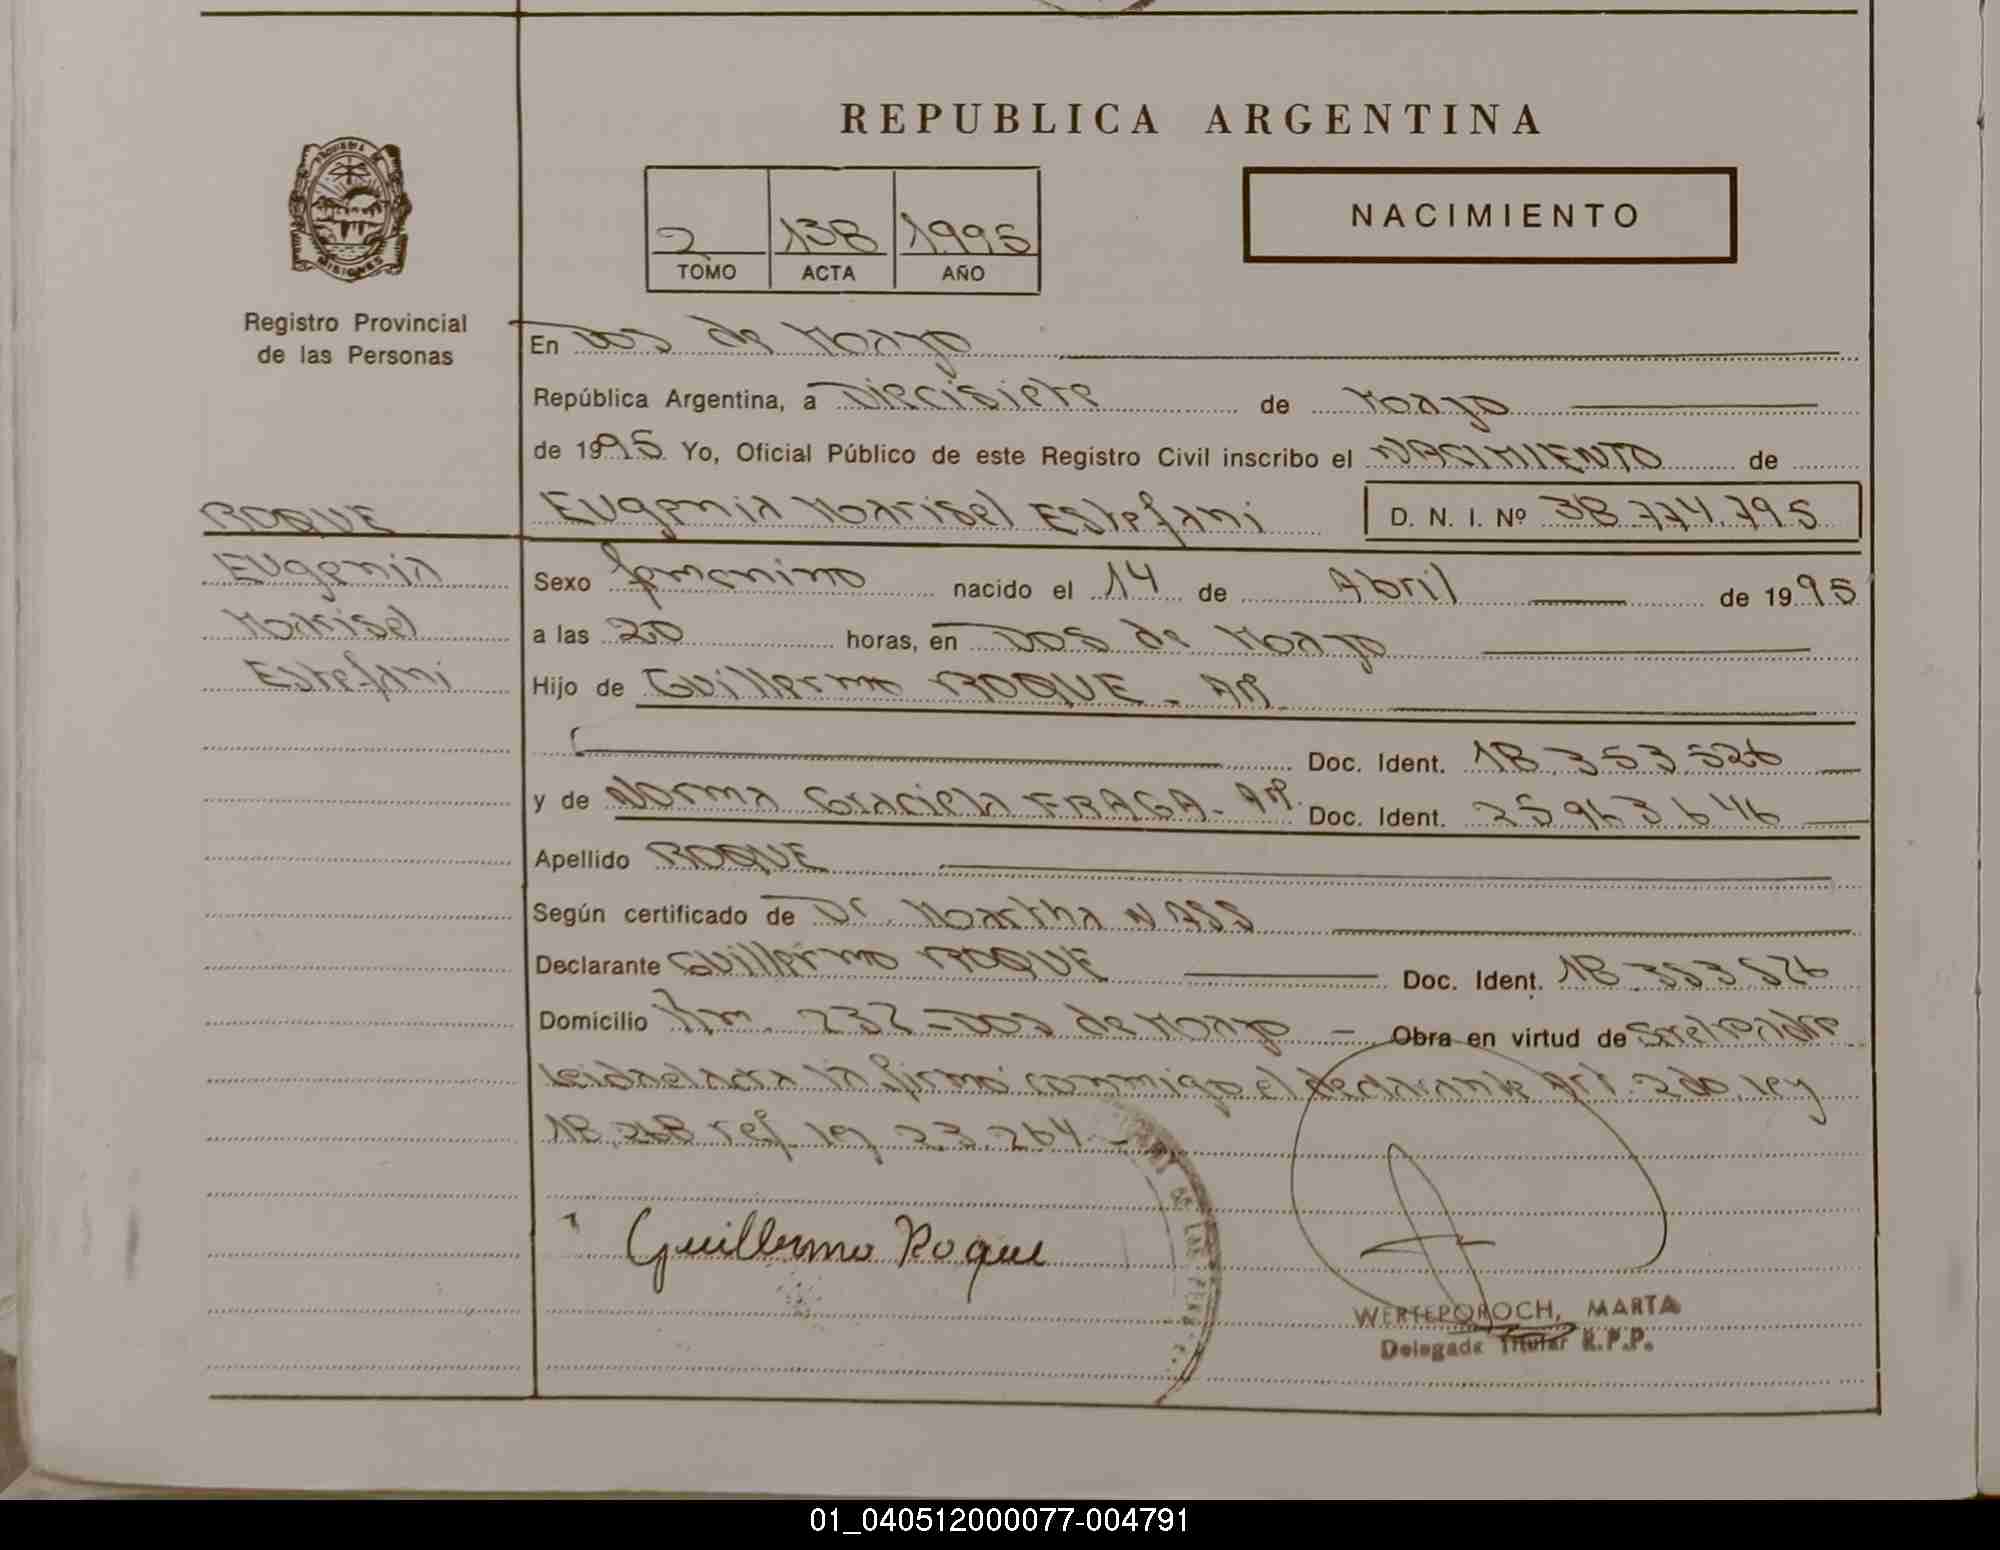 REPUBLICA ARGENTINA
PROVINCIA DE
MISIONES
2 138 1995
TOMO ACTA AÑO
NACIMIENTO
Registro Provincial
de las Personas
En Dos de Mayo
República Argentina, a Diecisiete de Mayo
de 1995 Yo, Oficial Público de este Registro Civil inscribo el NACIMIENTO de
ROQUE
Eugenia Marisel Estefani D. N. I. Nº 38.774.795
Eugenia
Marisel
Estefani
Sexo femenino nacido el 14 de Abril de 1995
a las 20 horas, en Dos de Mayo
Hijo de Guillermo ROQUE - AR
Doc. Ident. 18.353.526
y de Norma Graciela FRAGA - AR. Doc. Ident. 25963646
Apellido ROQUE
Según certificado de Dr. Martha NASS
Declarante Guillermo ROQUE Doc. Ident. 18.353.526
Domicilio Km. 232 - Dos de Mayo - Obra en virtud de
Leida el acta la firmó conmigo el declarante Art. 2do. ley
18.248 ref. ley 23.264.-
Guillermo Roque
DE LAS PERS
WERTEPOROCH, MARTA
Delegada Titular R.P.P.
01_040512000077-004791